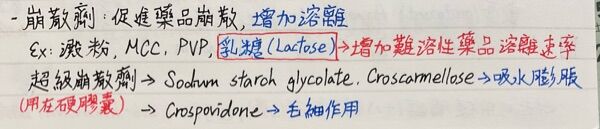 - 崩散劑:促進藥品崩散,增加溶離
Ex: 澱粉, MCC, PVP, 乳糖(Lactose)→增加難溶性藥品溶離速率
超級崩散劑 → Sodium starch glycolate, Croscarmellose → 吸水膨脹
(用在硬膠囊) → Crospovidone → 毛細作用